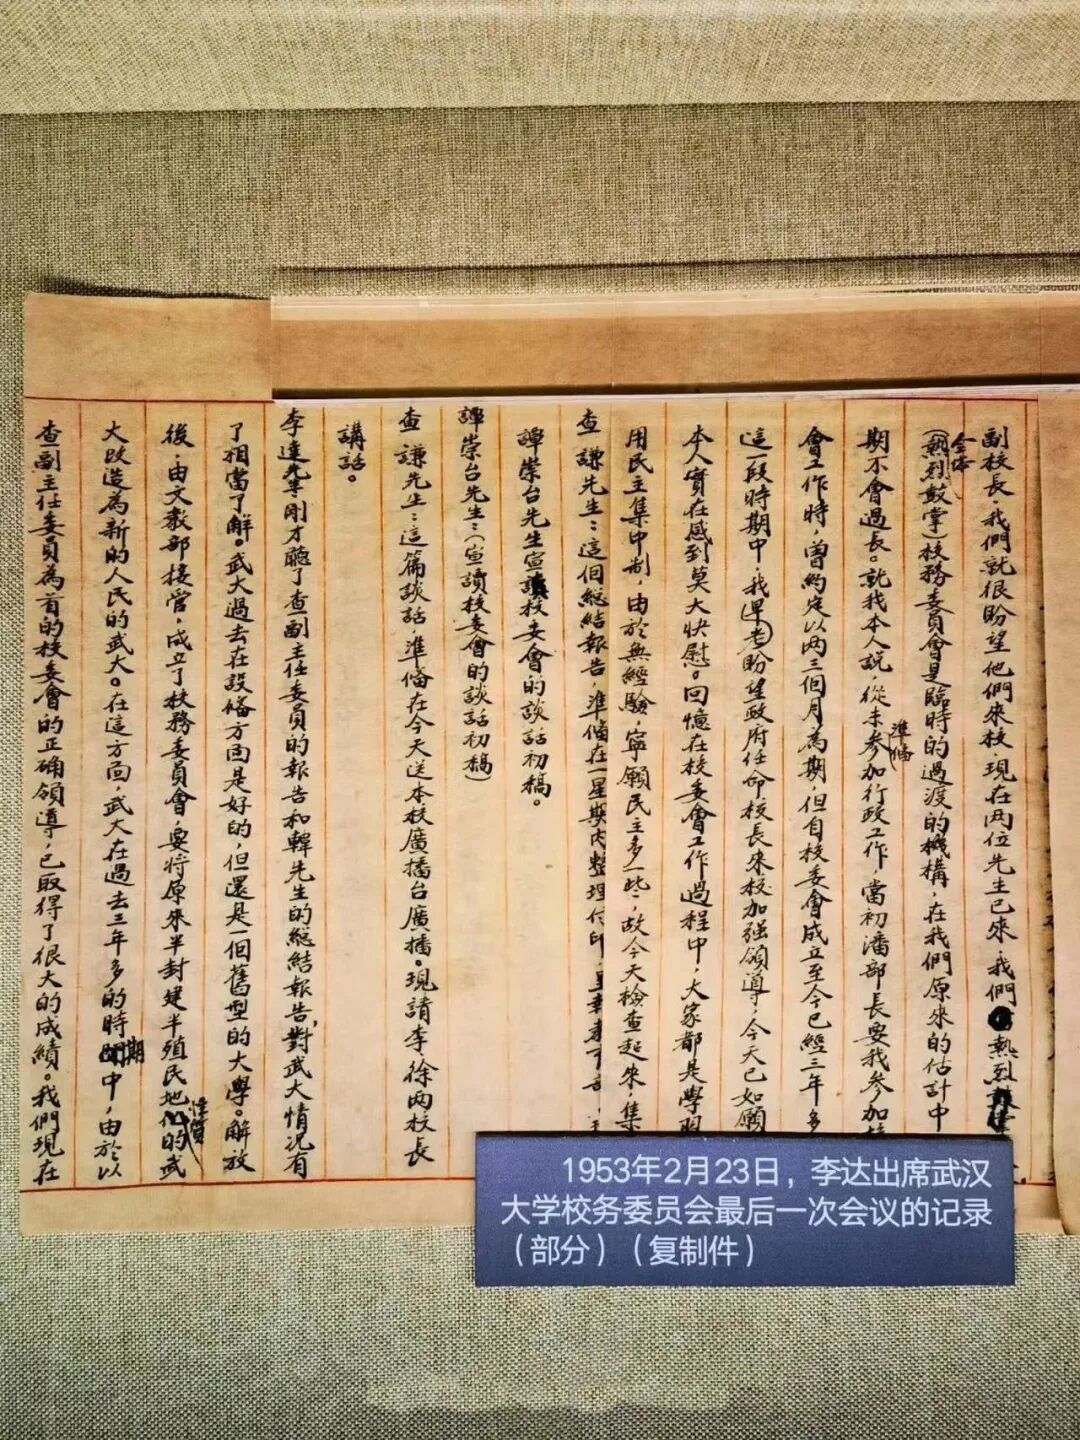 副校長，我們就很盼望他們來校，現在兩位先生已來，我們熱烈
全体
（熱烈鼓掌）校務委員會是臨時的過渡的機構，在我們原來的估計中
期不會過長。就我本人說，從未參加行政工作，當初潘部長要我參加
準備
會工作時，曾約定以兩三個月為期，但自校委會成立至今已經三年多
這一段時期中，我早老盼望政府任命校長來校加强領導，今天已如願
本人實在感到莫大快慰。回憶在校委會工作過程中，大家都是學習
用民主集中制，由於無經驗，寧願民主多一些，故今天檢查起來，集
查謙先生：這個總結報告，準備在一星期內整理付印，
譚崇台先生宣讀校委會的談話初稿。
譚崇台先生：（宣讀校委會的談話初稿）
查謙先生：這篇談話，準備在今天送本校廣播台廣播。現請李徐兩校長
講話。
李達先生剛才聽了查副主任委員的報告和韓先生的總結報告，對武大情况有
了相當了解。武大過去在設備方面是好的，但還是一個舊型的大學。解放
後，由文教部接管，成立了校務委員會，要將原來半封建半殖民地的武
性質
大改造為新的人民的武大。在這方面，武大在過去三年多的時期中，由於以
查副主任委員為首的校委會的正确領導，已取得了很大的成績。我們現在
1953年2月23日，李达出席武汉
大学校务委员会最后一次会议的记录
（部分）（复制件）